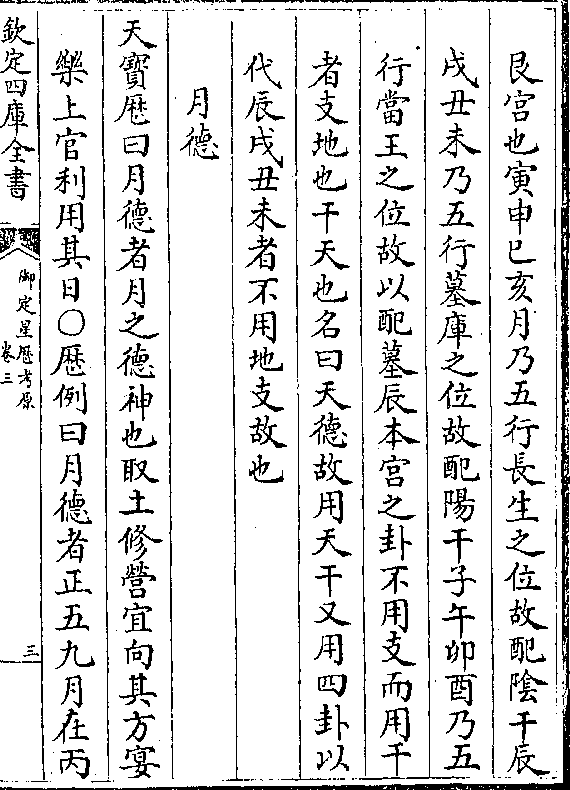 艮宫也寅申巳亥月乃五行長生之位故配陰干辰
戌丑未乃五行墓庫之位故配陽干子午卯酉乃五
行當王之位故以配墓辰本宫之卦不用支而用干
者支地也干天也名曰天德故用天干又用四卦以
代辰戌丑未者不用地支故也
月德
天寶歴曰月德者月之德神也取土修營宜向其方宴
樂上官利用其日○歴例曰月德者正五九月在丙
欽定四庫全書
御定星歴考原
卷三
三